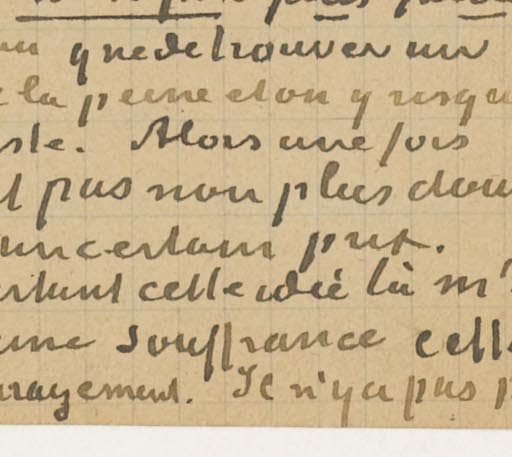 plus
que de trouver un
la peine et on y risqu
ste. Alors une fois
pas non plus dou
un certain prix.
rtant cette idée là m'
une souffrance cell
uragement. Il n'y a pas p